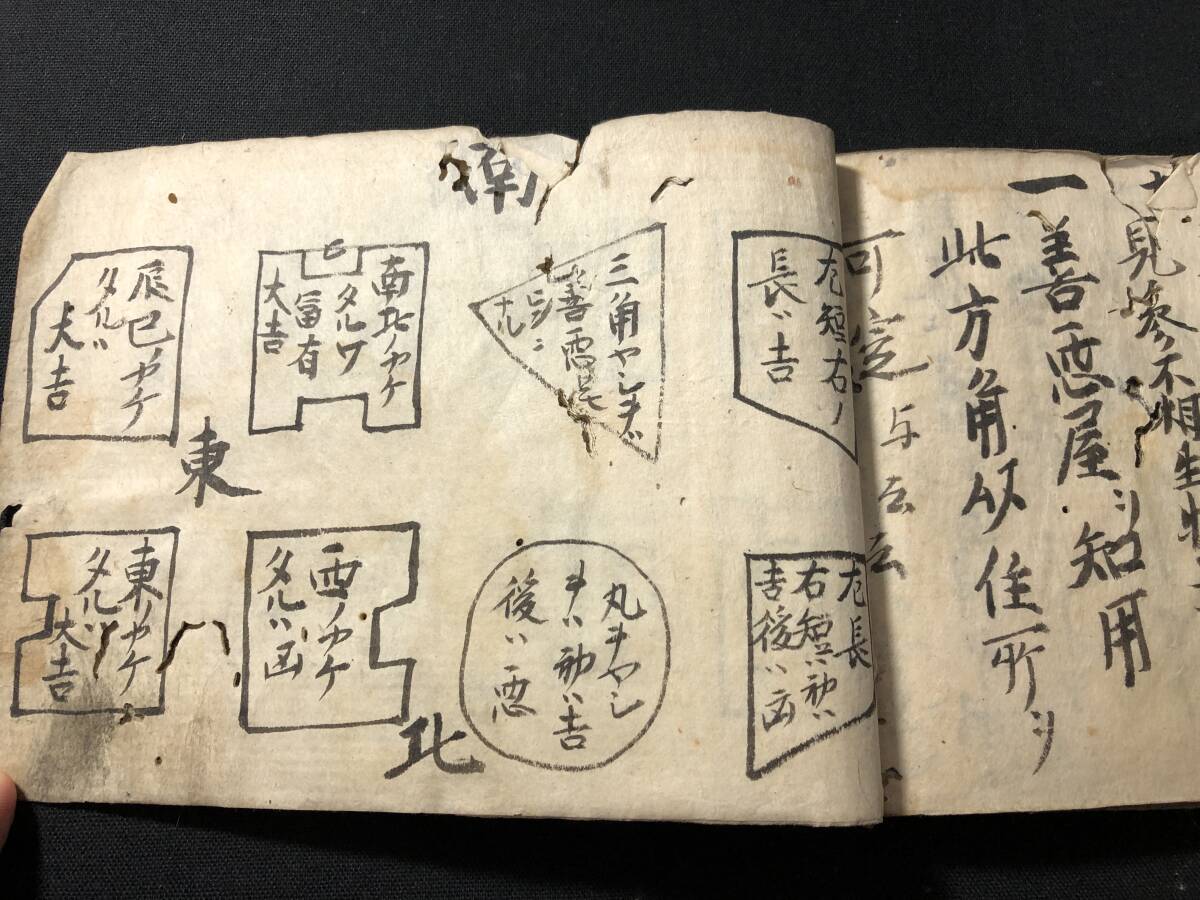 見参不相生
一善悪屋シ知用
此方角以住所ヲ
可定与云云
左短右ノ
長ハ吉
左長
右短ハ初ハ
吉後ハ凶
南
三角ヤシキハ
善悪
ナル
丸キヤシ
キハ初ハ吉
後ハ悪
南北ノカケ
タルワ
冨有
大吉
西ノカケ
タルハ凶
北
辰巳ノカケ
タルハ
大吉
東
東ノカケ
タルハ
大吉